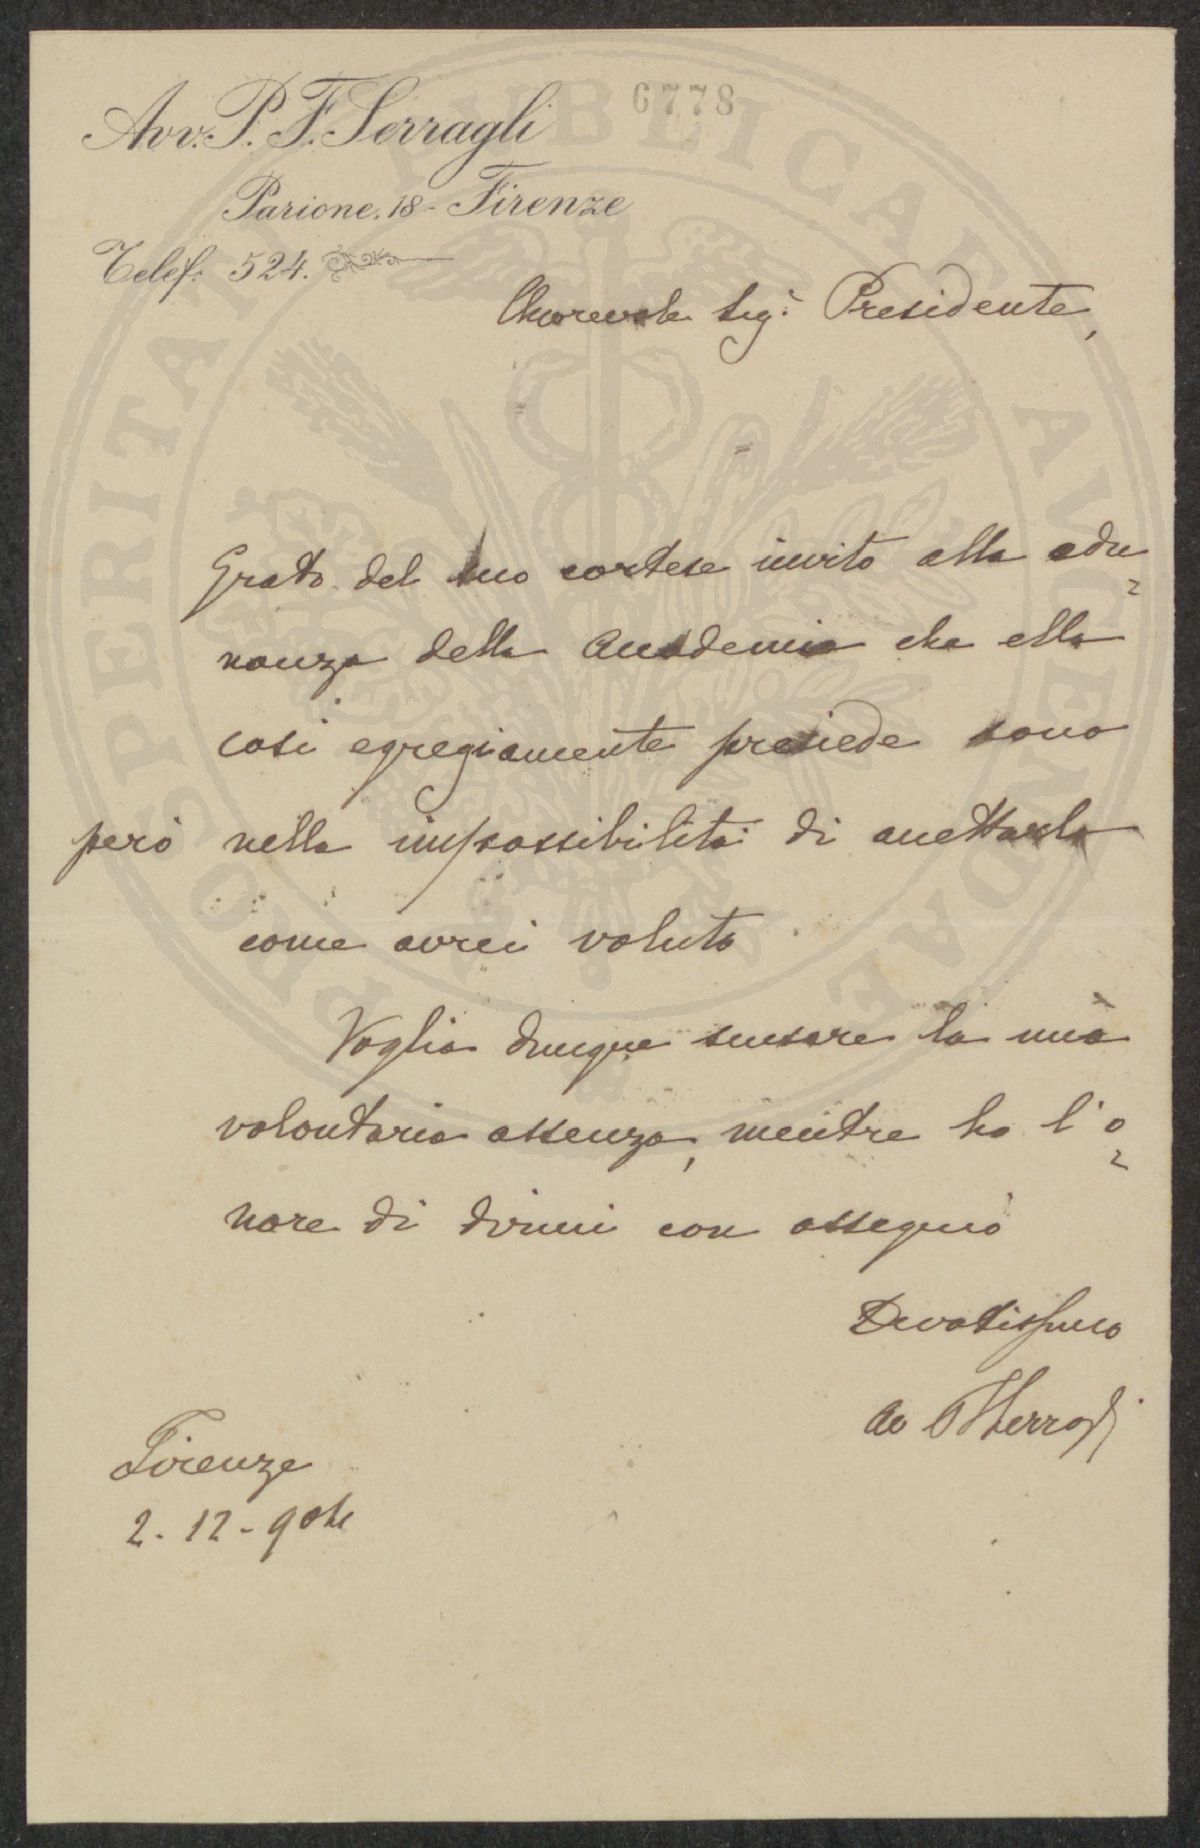 6778
Avv. P. F. Serragli
Parione, 18 - Firenze
Telef: 524.
Onorevole Sig.r Presidente,
Grato del suo cortese invito alla adu=
nanza della Accademia che ella
così egregiamente presiede sono
però nella impossibilità di accettarlo
come avrei voluto
Voglia dunque scusare la mia
volontaria assenza, mentre ho l'o=
nore di dirmi con ossequio
Devotissimo
Av PFSerragli
Firenze
2-12-904
PROSPERITATI PUBLICAE AUGENDAE